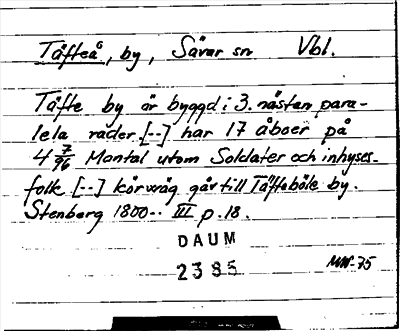 Täfteå, by, Sävar sn Vbl.
Täfte by är byggd i 3. nästan para-
lela rader [--] har 17 åboer på
4 7/96 Mantal utom Soldater och inhyses-
folk [--] körwäg går till Täfteböle by.
Stenberg 1800-. III p. 18.
DAUM
2385
MW-75